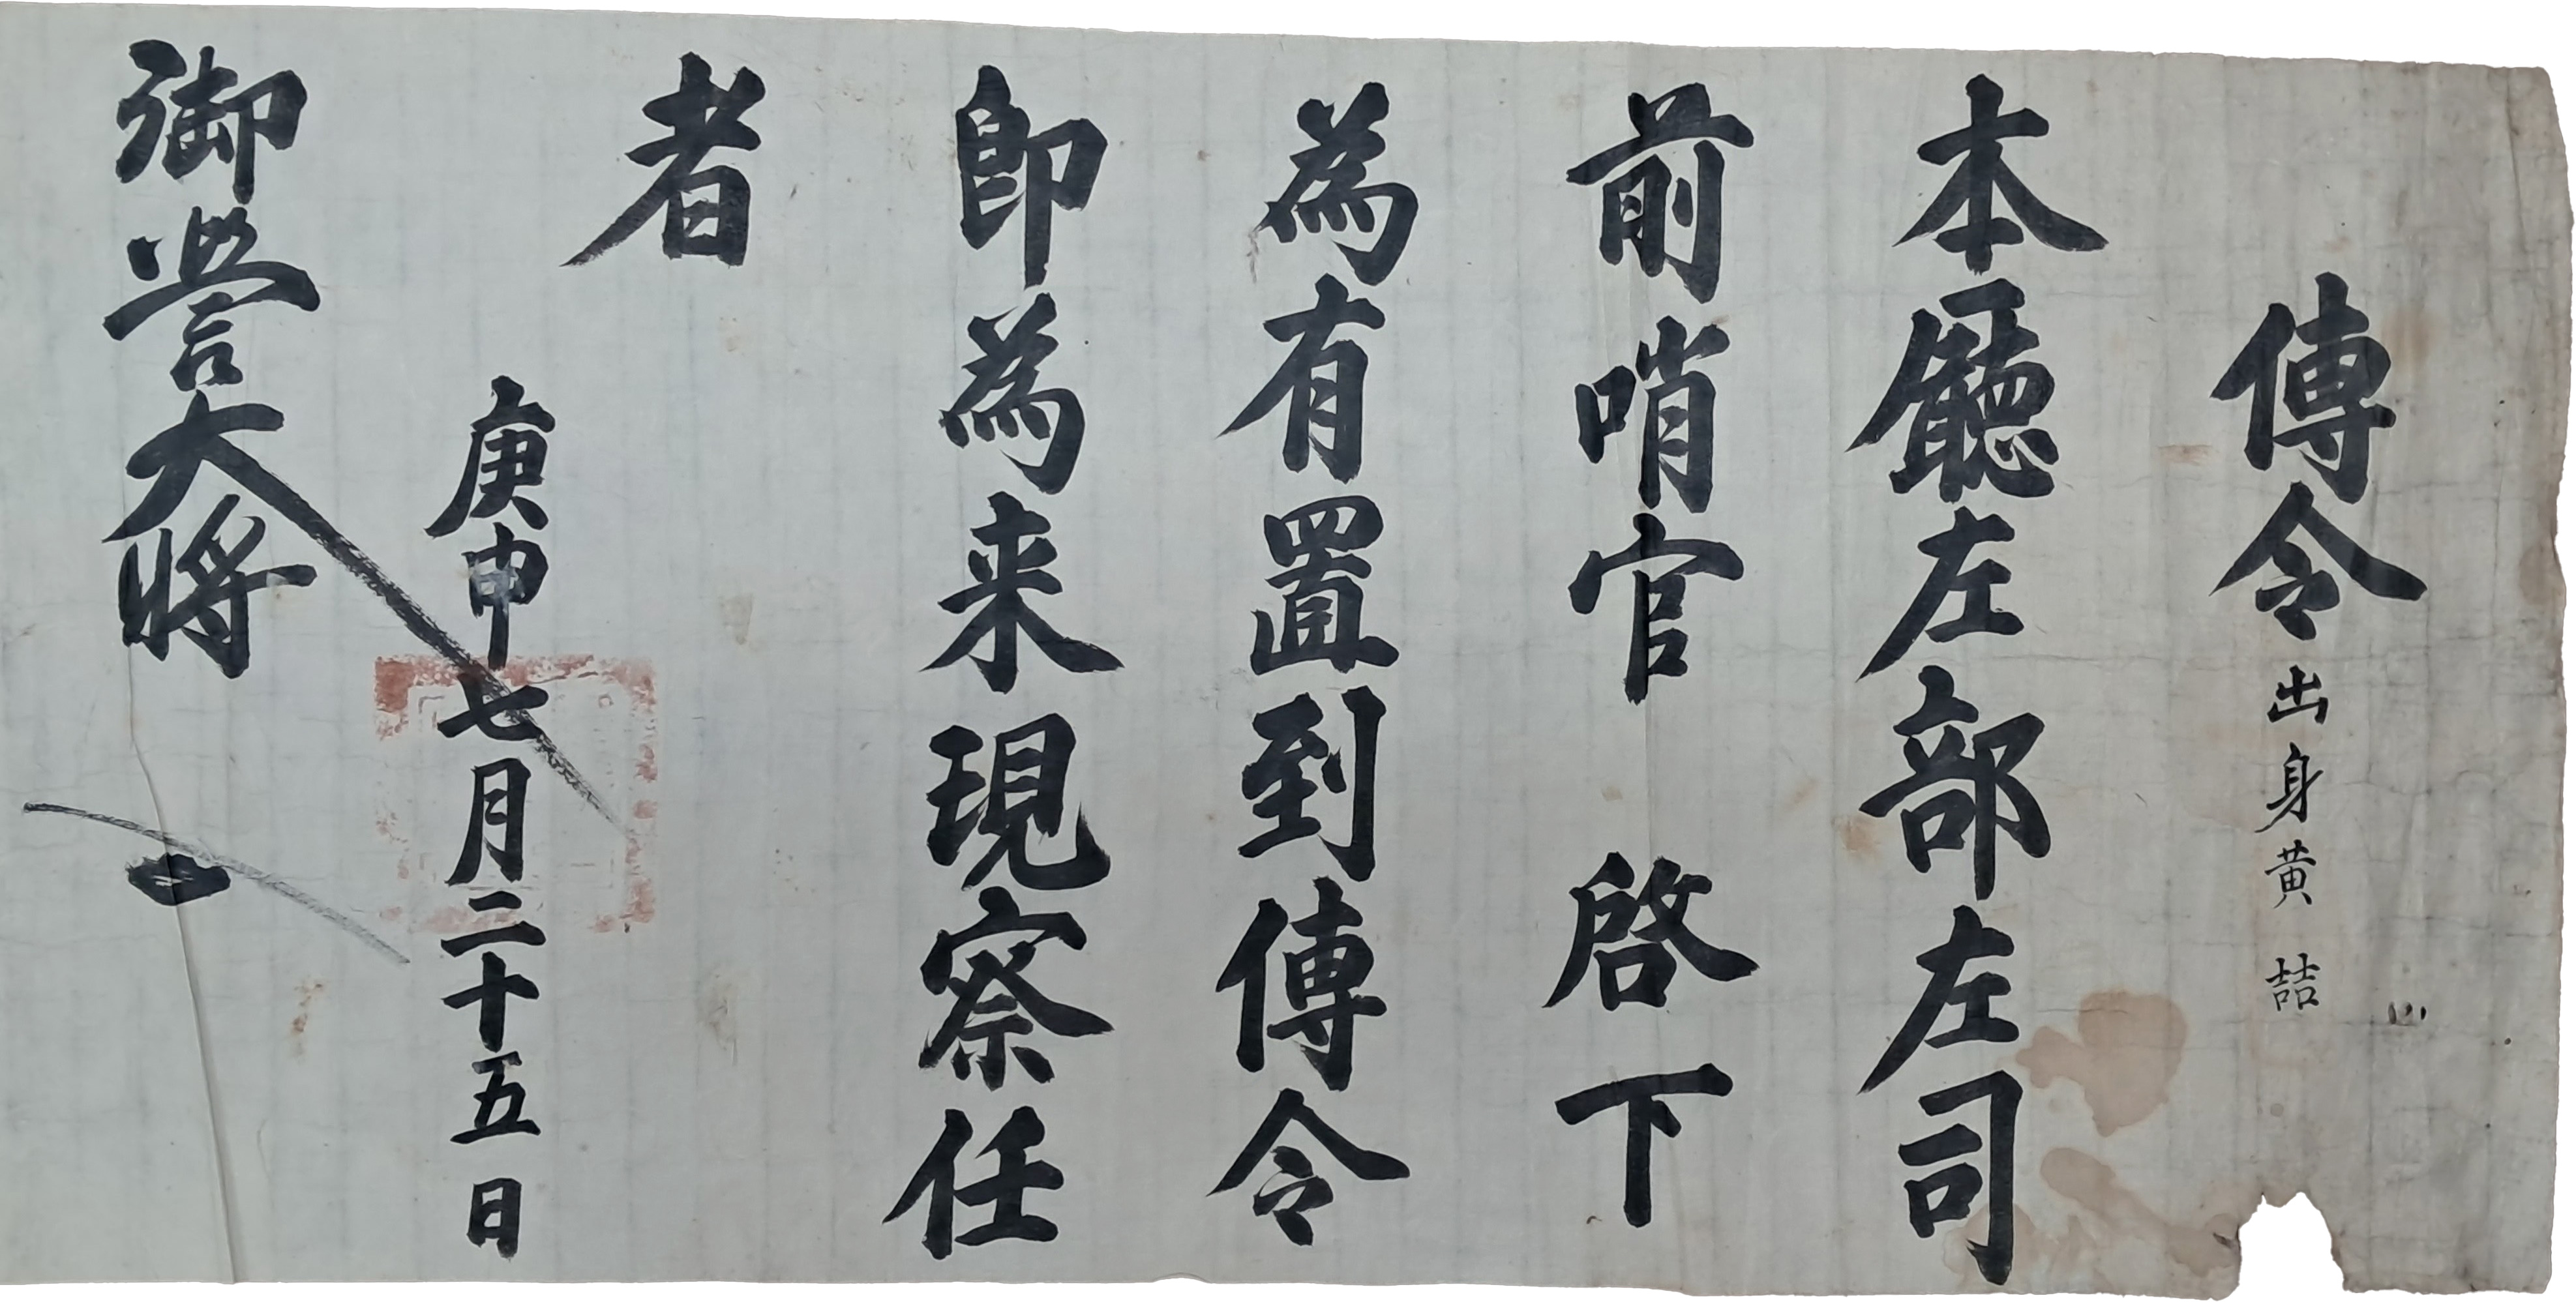 傳令 出身黃喆
本廳左部左司
前哨官 啓下
為有置到傳令
卽為来現察任
者
庚申七月二十五日
御營大將